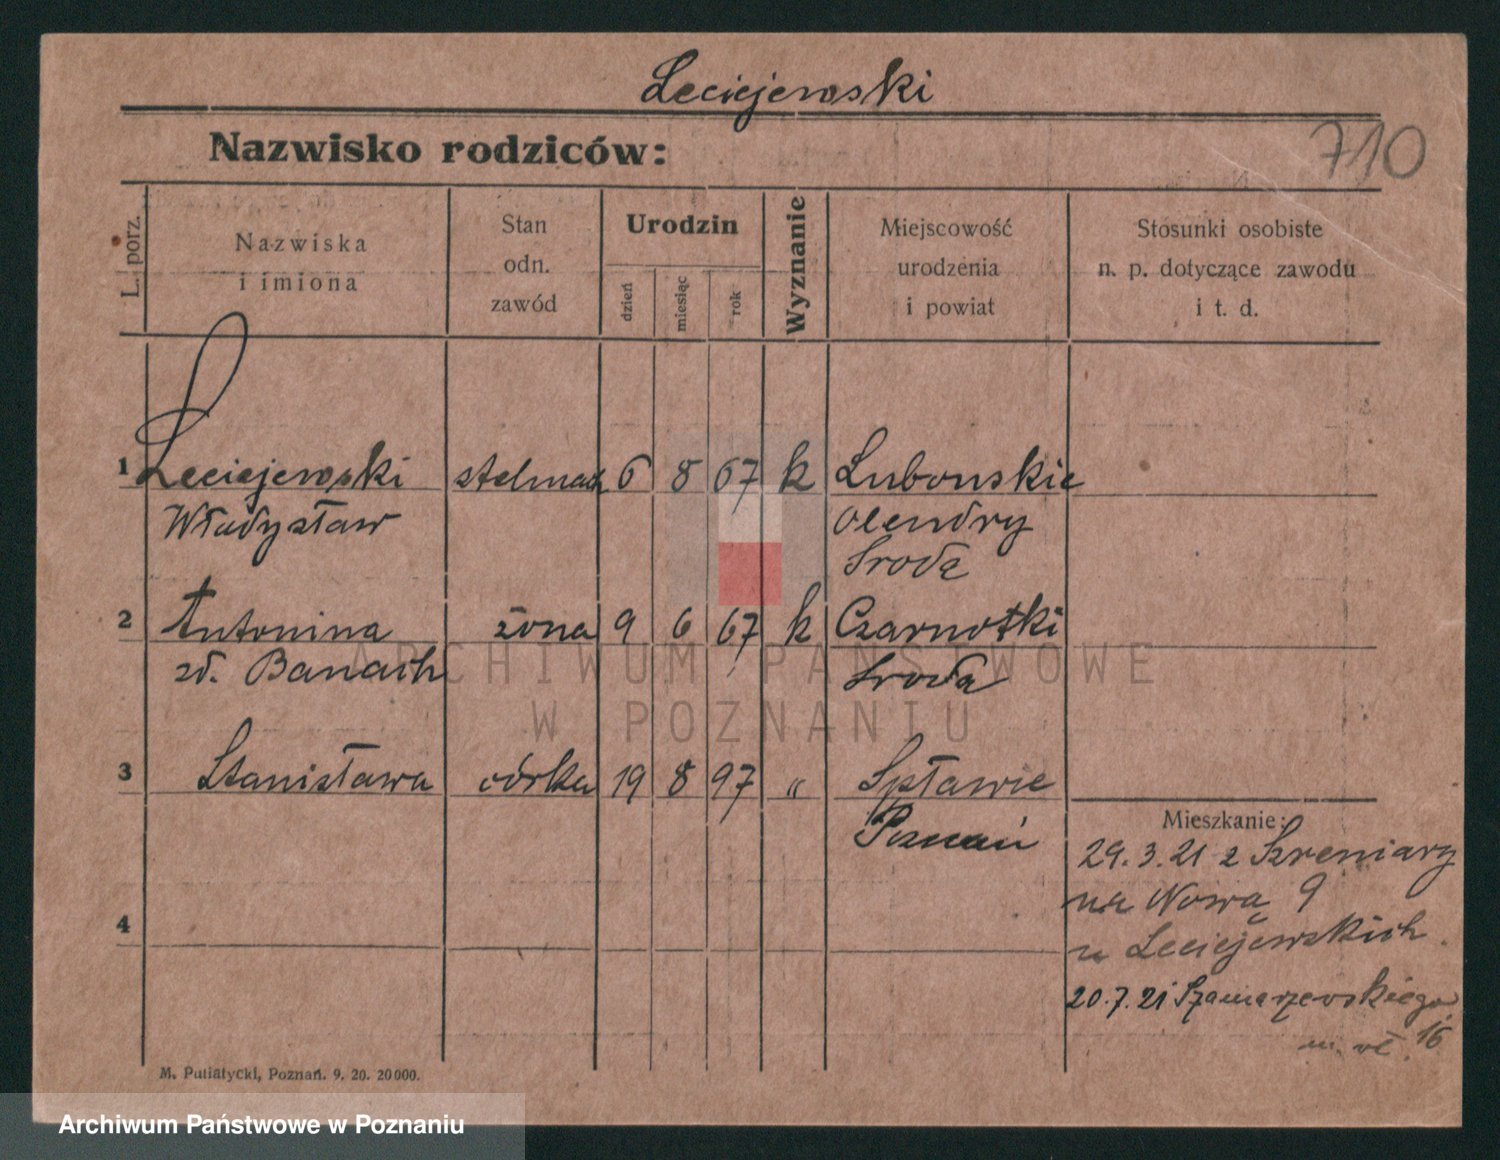 Leciejewski
Nazwisko rodziców:
710
L. porz.
Nazwiska
i imiona
Stan
odn.
zawód
Urodzin
dzień
miesiąc
rok
Wyznanie
Miejscowość
urodzenia
i powiat
Stosunki osobiste
n. p. dotyczące zawodu
i t. d.
1 Leciejewski stelmach 6 8 67 k Lubonskie
Władysław Olendry
Sroda
2 Antonina żona 9 6 67 k Czarnotki
zd. Banach Sroda
ARCHIWUM PAŃSTWOWE
W POZNANIU
3 Stanisława córka 19 8 97 " Spławie
Poznań
Mieszkanie:
29.3.21 z Szreniawy
na Nowa 9
u Leciejewskich
20.7.21 Szamarzewskiego
16
4
M. Putiatycki, Poznań. 9. 20. 20000.
Archiwum Państwowe w Poznaniu